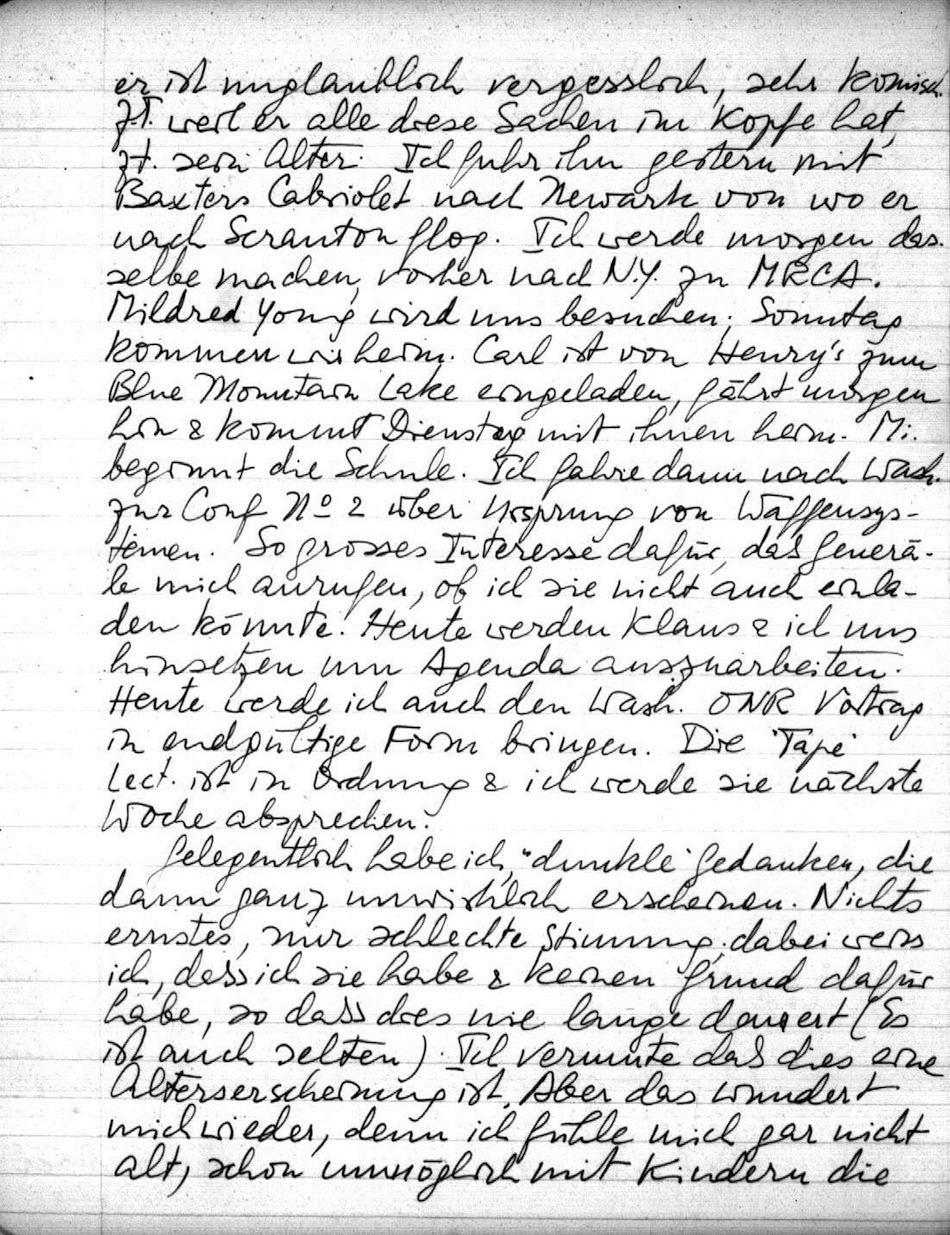 er ist unglaublich vergesslich, sehr komisch.
zT. weil er alle diese Sachen im Kopfe hat,
zt. sein Alter. Ich fuhr ihn gestern mit
Baxters Cabriolet nach Newark von wo er
nach Scranton flog. Ich werde morgen das-
selbe machen, vorher nach N.Y. zu MRCA.
Mildred Young wird uns besuchen; Sonntag
kommen wir heim. Carl ist von Henry's zum
Blue Mountain Lake eingeladen, fährt morgen
hin & kommt Dienstag mit ihnen heim. Mi.
beginnt die Schule. Ich fahre dann nach Wash.
zur Conf No 2 über Ursprung von Waffensys-
temen. So grosses Interesse dafür, daß Generä-
le mich anrufen, ob ich sie nicht auch einla-
den könnte! Heute werden Klaus & ich uns
hinsetzen um Agenda auszuarbeiten.
Heute werde ich auch den Wash. ONR Vortrag
in endgültige Form bringen. Die 'Tape'
Lect. ist in Ordnung & ich werde sie nächste
Woche absprechen.
Gelegentlich habe ich "dunkle" Gedanken, die
dann ganz unwirklich erscheinen. Nichts
ernstes, nur schlechte Stimmung; dabei weiss
ich, dass ich sie habe & keinen Grund dafür
habe, so dass dies nie lange dauert (Es
ist auch selten). Ich vermute daß dies eine
Alterserscheinung ist. Aber das wundert
mich wieder, denn ich fühle mich gar nicht
alt, schon unmöglich mit Kindern die